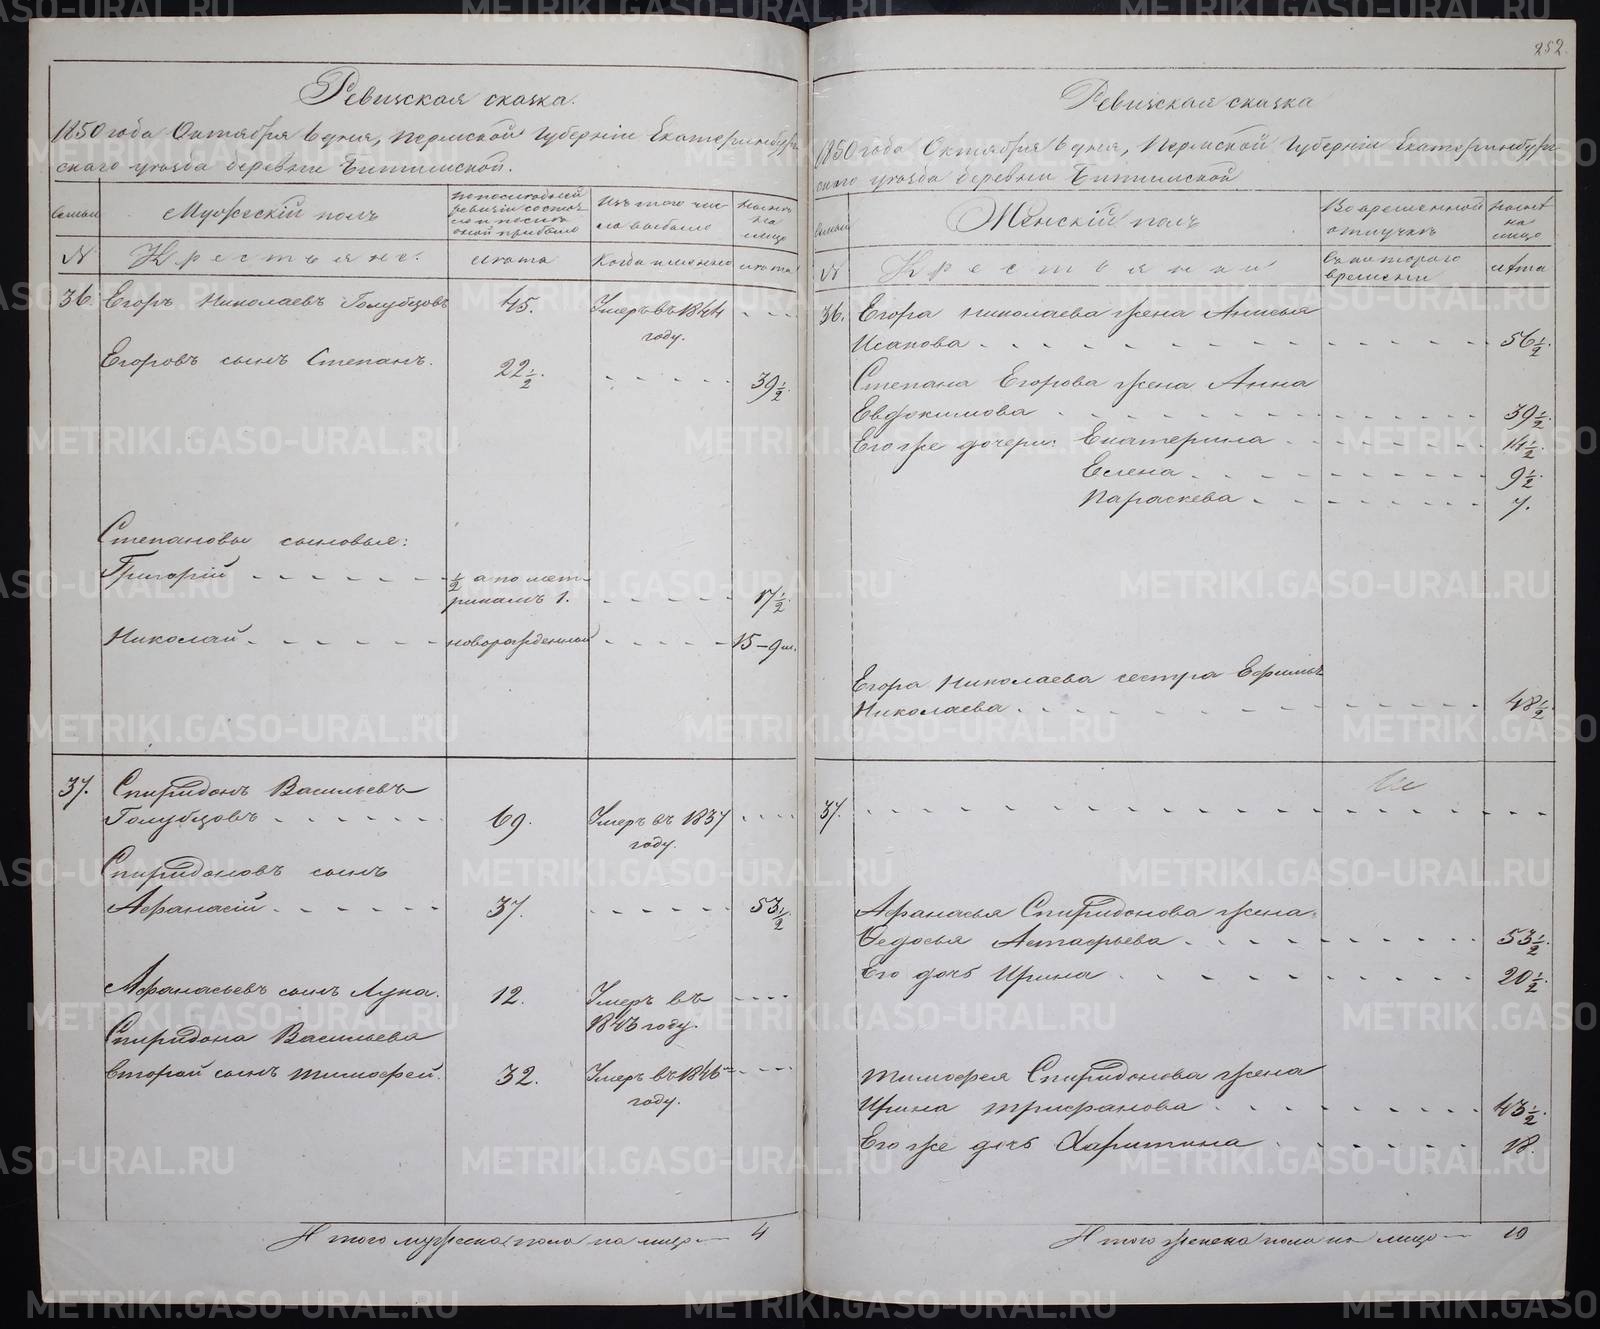 Ревизская сказка.
1850 года Октября 6 дня, Пермской Губерніи Екатеринбург-
скаго уѣзда деревни Битимской.
Семьи
Мужескій полъ
По последней ревизіи состояло и после оной прибыло
Изъ того числа выбыло
Нынѣ на лицо
№
Крестьяне.
Лѣта
Когда именно
лѣта
36. Егоръ Николаевъ Голубцовъ 45. Умеръ въ 1844 - - -
году.
Егоровъ сынъ Степанъ. 22½. - - - - - 39½.
Степановы сыновья:
Григорій - - - - - - ½ а по мет-
рикамъ 1. - - - - - 17½
Николай - - - - - - новорожденной - - - - - 15-9 м.
37. Спиридонъ Васильевъ
Голубцовъ - - - - - - 69. Умеръ въ 1837 - - - -
году.
Спиридоновъ сынъ
Афанасій - - - - - - 37. - - - - - 53½
Афанасьевъ сынъ Лука. 12. Умеръ въ - - - -
1843 году.
Спиридона Васильева
второй сынъ Тимофей. 32. Умеръ въ 1846 - - - -
году.
Итого мужеска пола на лицо — 4
252.
Ревизская сказка
1850 года Октября 6 дня, Пермской Губерніи Екатеринбург-
скаго уѣзда деревни Битимской
Семьи
Женскій полъ
Во временной отлучкѣ
Нынѣ на лицо
№
Крестьянки
Съ котораго времени
Лѣта
36. Егора Николаева жена Анисья
Исакова - - - - - - 56½.
Степана Егорова жена Анна
Евдокимова - - - - - - 39½.
Его же дочери: Екатерина - - - - - - 14½.
Елена - - - - - - 9½.
Параскева - - - - - - 7.
Егора Николаева сестра Ефимья
Николаева - - - - - - 48½.
37. - - - - - - - - - - - -
Афанасья Спиридонова жена
Федосья Астафьева - - - - - - 53½.
Его дочь Ирина - - - - - - 20½.
Тимофея Спиридонова жена
Ирина Трифанова - - - - - - 43½.
Его же дочь Харитина - - - - - - 18.
Итого женска пола на лицо — 10
METRIKI.GASO-URAL.RU